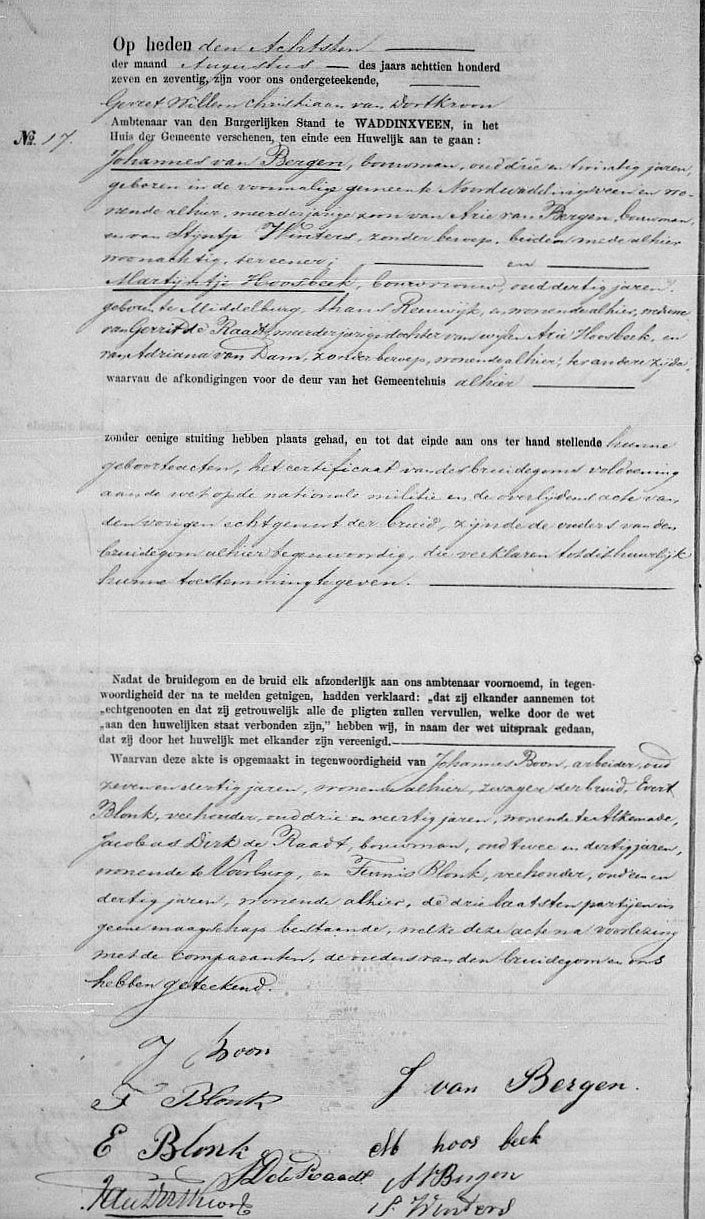 Op heden den Achtsten
der maand Augustus des jaars achttien honderd
zeven en zeventig, zijn voor ons ondergeteekende,
Gerret Willem Christiaan van Dortkroon
Ambtenaar van den Burgerlijken Stand te WADDINXVEEN, in het
Huis der Gemeente verschenen, ten einde een Huwelijk aan te gaan:
No. 17.
Johannes van Bergen, bouwman, oud drie en twintig jaren,
geboren in de voormalige gemeente Noordwaddingsveen en wo-
nende alhier, meerderjarige zoon van Arie van Bergen, bouwman,
en van Stijntje Winters, zonder beroep, beiden mede alhier
woonachtig, ter eener; en
Martijntje Hoosbeek, bouwvrouw, oud dertig jaren,
geboren te Middelburg, thans Reeuwijk, en wonende alhier, weduwe
van Gerrit de Raadt, meerderjarige dochter van wijlen Arie Hoosbeek, en
van Adriana van Dam, zonder beroep, wonende alhier, ter andere zijde,
waarvan de afkondigingen voor de deur van het Gemeentehuis alhier
zonder eenige stuiting hebben plaats gehad, en tot dat einde aan ons ter hand stellende hunne
geboorteacten, het certificaat van des bruidegoms voldoening
aan de wet op de nationale militie en de overlijdens acte van
den vorigen echtgenoot der bruid, zijnde de ouders van den
bruidegom alhier tegenwoordig, die verklaren tot dit huwelijk
hunne toestemming te geven.
Nadat de bruidegom en de bruid elk afzonderlijk aan ons ambtenaar voornoemd, in tegen-
woordigheid der na te melden getuigen, hadden verklaard: „dat zij elkander aannemen tot
„echtgenooten en dat zij getrouwelijk alle de pligten zullen vervullen, welke door de wet
„aan den huwelijken staat verbonden zijn,” hebben wij, in naam der wet uitspraak gedaan,
dat zij door het huwelijk met elkander zijn vereenigd.
Waarvan deze akte is opgemaakt in tegenwoordigheid van Johannes Boon, arbeider, oud
zeven en dertig jaren, wonende alhier, zwager der bruid, Evert
Blonk, veehouder, oud drie en veertig jaren, wonende te Alkemade,
Jacobus Dirk de Raadt, bouwman, oud twee en dertig jaren,
wonende te Voorburg, en Teunis Blonk, veehouder, oud een en
dertig jaren, wonende alhier, de drie laatsten partijen in
geene maagschap bestaande, welke deze acte na voorlezing
met de comparanten, de ouders van den bruidegom en ons
hebben geteekend.
J Boon
J van Bergen.
T Blonk
E Blonk
M hoos beek
JD de Raadt
A v Bergen
S. Winters